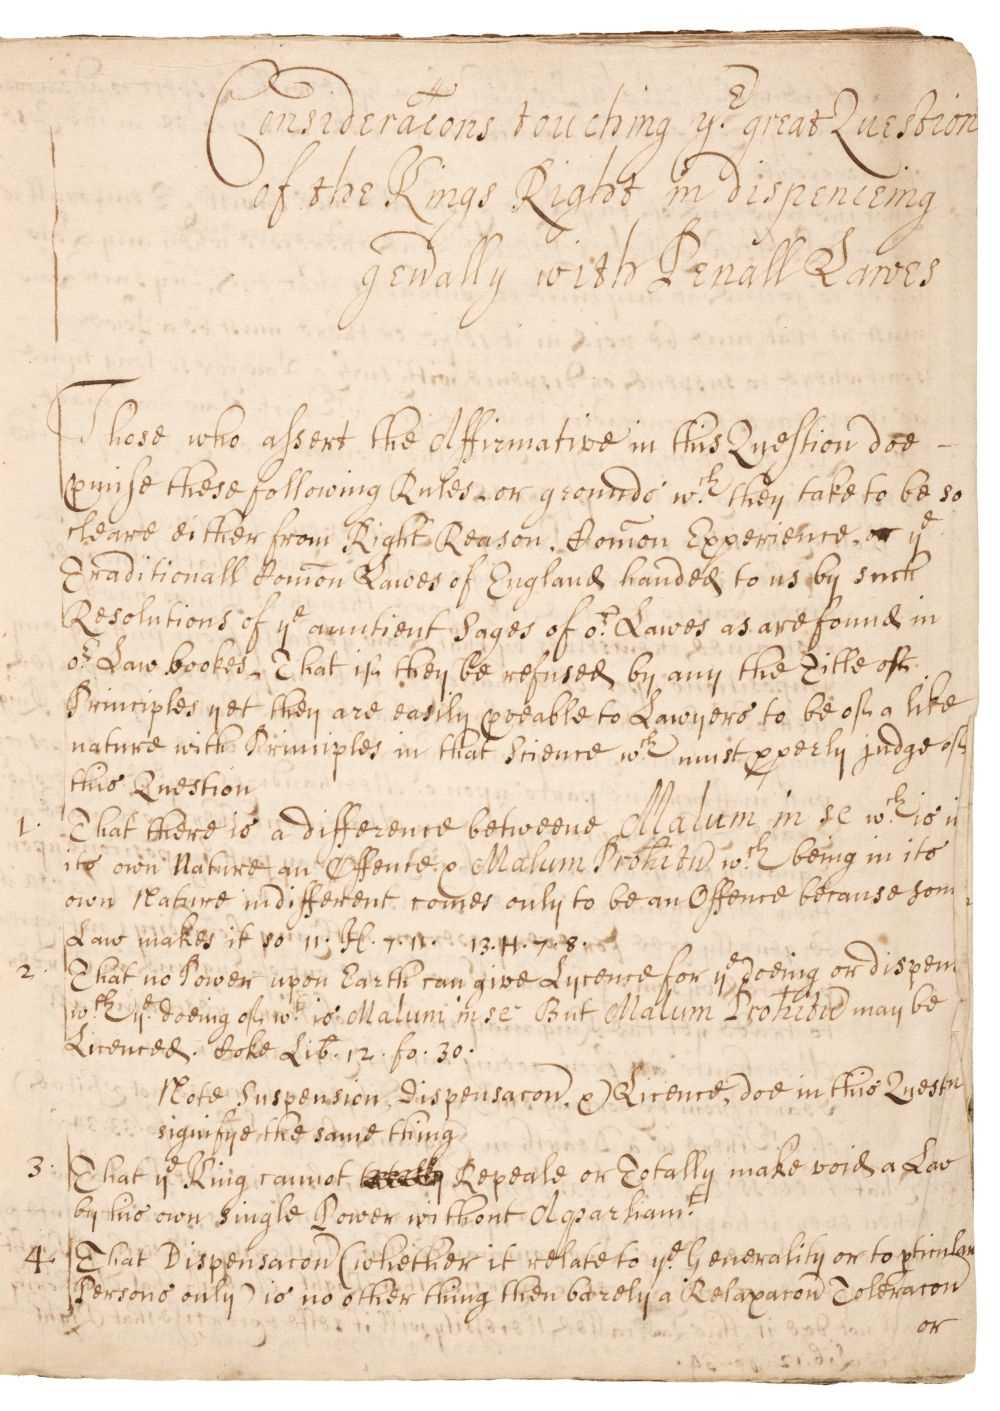 Considerac̃ons touching yᵉ great Question
of the Kings Right in dispenceing
genʳally with Penall Lawes
Those who assert the Affirmative in this Question doe –
p̱mise these following Rules or grounds wᶜʰ they take to be so
cleare either from Right Reason, Com̃on Experience, or yᵉ
Traditionall Com̃on Lawes of England handed to us by such
Resolutions of yᵉ auntient Sages of oʳ Lawes as are found in
oʳ Law bookes, That if they be refused by any the Title of
Principles yet they are easily p̱veable to Lawyers to be of a like
nature with Principles in that Science wᶜʰ must p̱perly judge of
this Question
1. That there is a difference betweene Malum in se wᶜʰ is in
its own Nature an Offence & Malum Prohibitũ wᶜʰ being in its
own Nature indifferent comes only to be an Offence because som
Law makes it so 11. H. 7. 11. 13. H. 7. 8.
2. That no Power upon Earth can give Lycence for yᵉ doeing or dispen
wᵗʰ yᵉ doeing of wᵗ is Malum in se But Malum Prohibitũ may be
Licenced. Coke Lib. 12. fo. 30.
Note Suspension, Dispensac̃on, & Licence, doe in this Questn
signifye the same thing
3. That yᵉ King cannot Repeale or Totally make void a Law
by his own Single Power without A p̱arliamᵗ
4. That Dispensac̃on (whether it relate to yᵉ Generality or to p̱ticular
Persons only) is no other thing then barely a Relaxac̃on Tolerac̃on
or